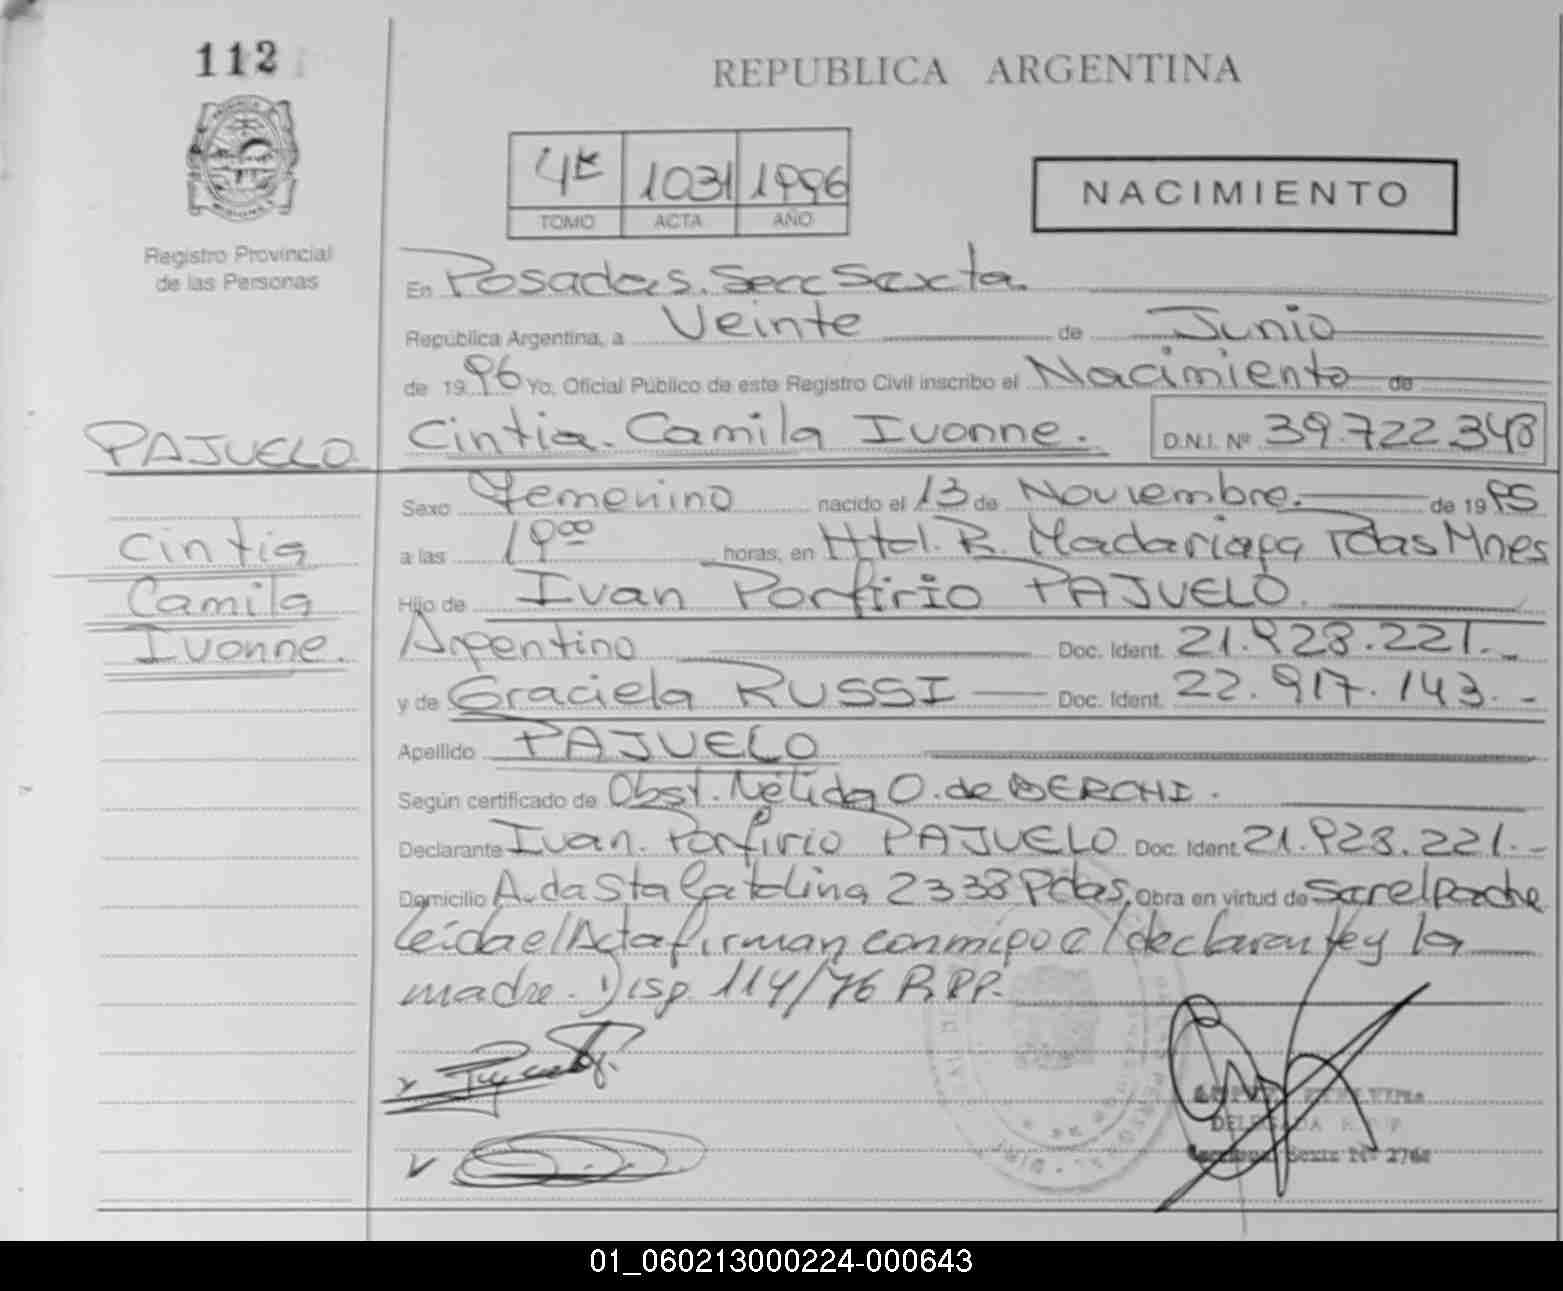 112
REPUBLICA ARGENTINA
4t 1031 1996
TOMO ACTA AÑO
NACIMIENTO
Registro Provincial
de las Personas
En Posadas. Secc Sexta.
República Argentina, a Veinte de Junio
de 1996 Yo, Oficial Público de este Registro Civil inscribo el Nacimiento de
PAJUELO Cintia. Camila Ivonne. D.N.I. Nº 39.722.348
Sexo Femenino nacido el 13 de Noviembre. de 1995
Cintia
a las 19 00 horas, en Htal. R. Madariaga Pdas Mnes
Camila
Hijo de Ivan Porfirio PAJUELO.
Ivonne.
Argentino Doc. Ident. 21.923.221.-
y de Graciela RUSSI Doc. Ident. 22.917.143.-
Apellido PAJUELO
Según certificado de Obst. Nélida O. de BERCHI.
Declarante Ivan. Porfirio PAJUELO Doc. Ident. 21.923.221.-
Domicilio Avda Sta Catalina 2338 Pdas. Obra en virtud de ser el padre
leida el Acta firman conmigo el declarante y la
madre. Disp. 114/76 R.P.P.
DELEGADA R.P.P
Sexta Nº 2768
01_060213000224-000643